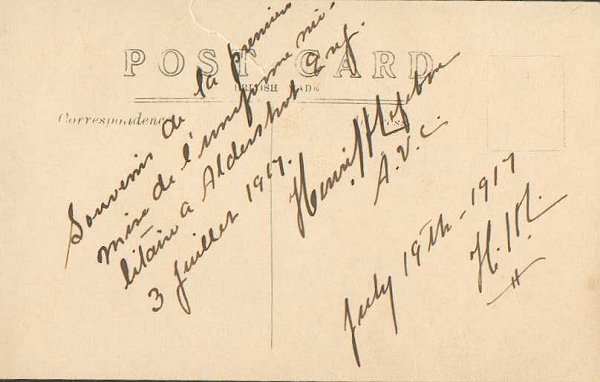 POST CARD
BRITISH MADE
Correspondence
Souvenir de la première
mise de l'uniforme mi-
litaire à Aldershot Eng.
3 Juillet 1917.
Henri Lefebvre
A.V.C.
July 19th - 1917